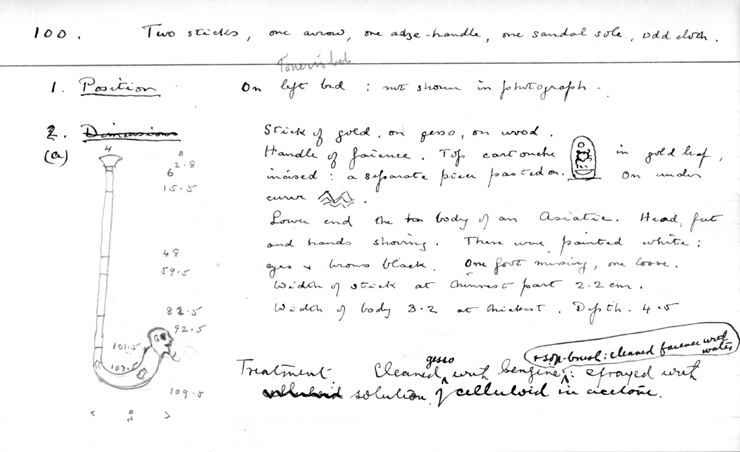 100. Two sticks, one arrow, one adze-handle, one sandal sole, odd cloth.
1. Position On left bed : not shown in photograph.
2. Dimensions Stick of gold, on gesso, on wood.
(a) Handle of faience. Top cartouche in gold leaf,
incised : a separate piece pasted on. On under
curve
Lower end the body of an Asiatic. Head, feet
and hands showing. These were painted white :
eyes & brows black. One foot missing, one loose.
Width of stick at thinnest part 2.2 cm.
Width of body 3.2 at thickest. Depth. 4.5
4
0
2.8
6
15.5
48
59.5
82.5
92.5
101.5
107.5
109.5
+ sop. brush : cleaned faience with
water
gesso
Treatment Cleaned with benzine : sprayed with
celluloid solution of celluloid in acetone.